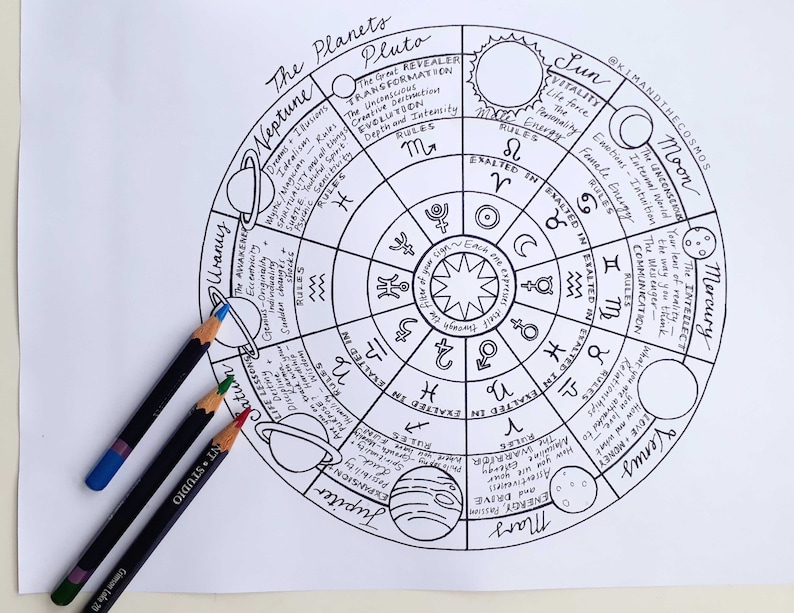 The Planets
@KIMANDTHECOSMOS
Pluto
The Great REVEALER
TRANSFORMATION
The Unconscious
Creative Destruction
EVOLUTION
Depth and Intensity
RULES
Sun
VITALITY
Life force
The
Personality
Male Energy
RULES
EXALTED IN
Moon
The UNCONSCIOUS
Internal World
Emotions - Intuition
Female Energy
RULES
EXALTED IN
Mercury
The INTELLECT
Your lens of reality -
the way you think
The Messenger -
COMMUNICATION
RULES
EXALTED IN
Venus
LOVE + MONEY
How and what
you love
what you are attracted to
Relationships
RULES
EXALTED IN
Mars
ENERGY, Passion
and DRIVE
Assertiveness
How you use your
Masculine Energy
The WARRIOR
RULES
EXALTED IN
Jupiter
EXPANSION
possibility
Luck
Spirituality
Growth
Philosophy
where you find
RULES
EXALTED IN
Saturn
LIFE LESSONS
Destiny +
Discipline
RULES
EXALTED IN
Uranus
The AWAKENER
Eccentricity
Genius-Originality +
Individuality
Sudden changes +
shocks
RULES
Neptune
Dreams + Illusions
Idealism
Mystic/Magician - Rules
SPIRITUALITY and all things
SUBTLE. Youthful Spirit-
Psychic Sensitivity
RULES
Each one expresses itself through the filter of your sign ~
NT·STUDIO
Crimson Lake 20
20